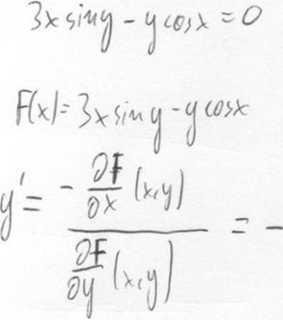 3x sin y - y cos x = 0
F(x) = 3x sin y - y cos x
y' = - ∂F/∂x (x,y) / ∂F/∂y (x,y) = -